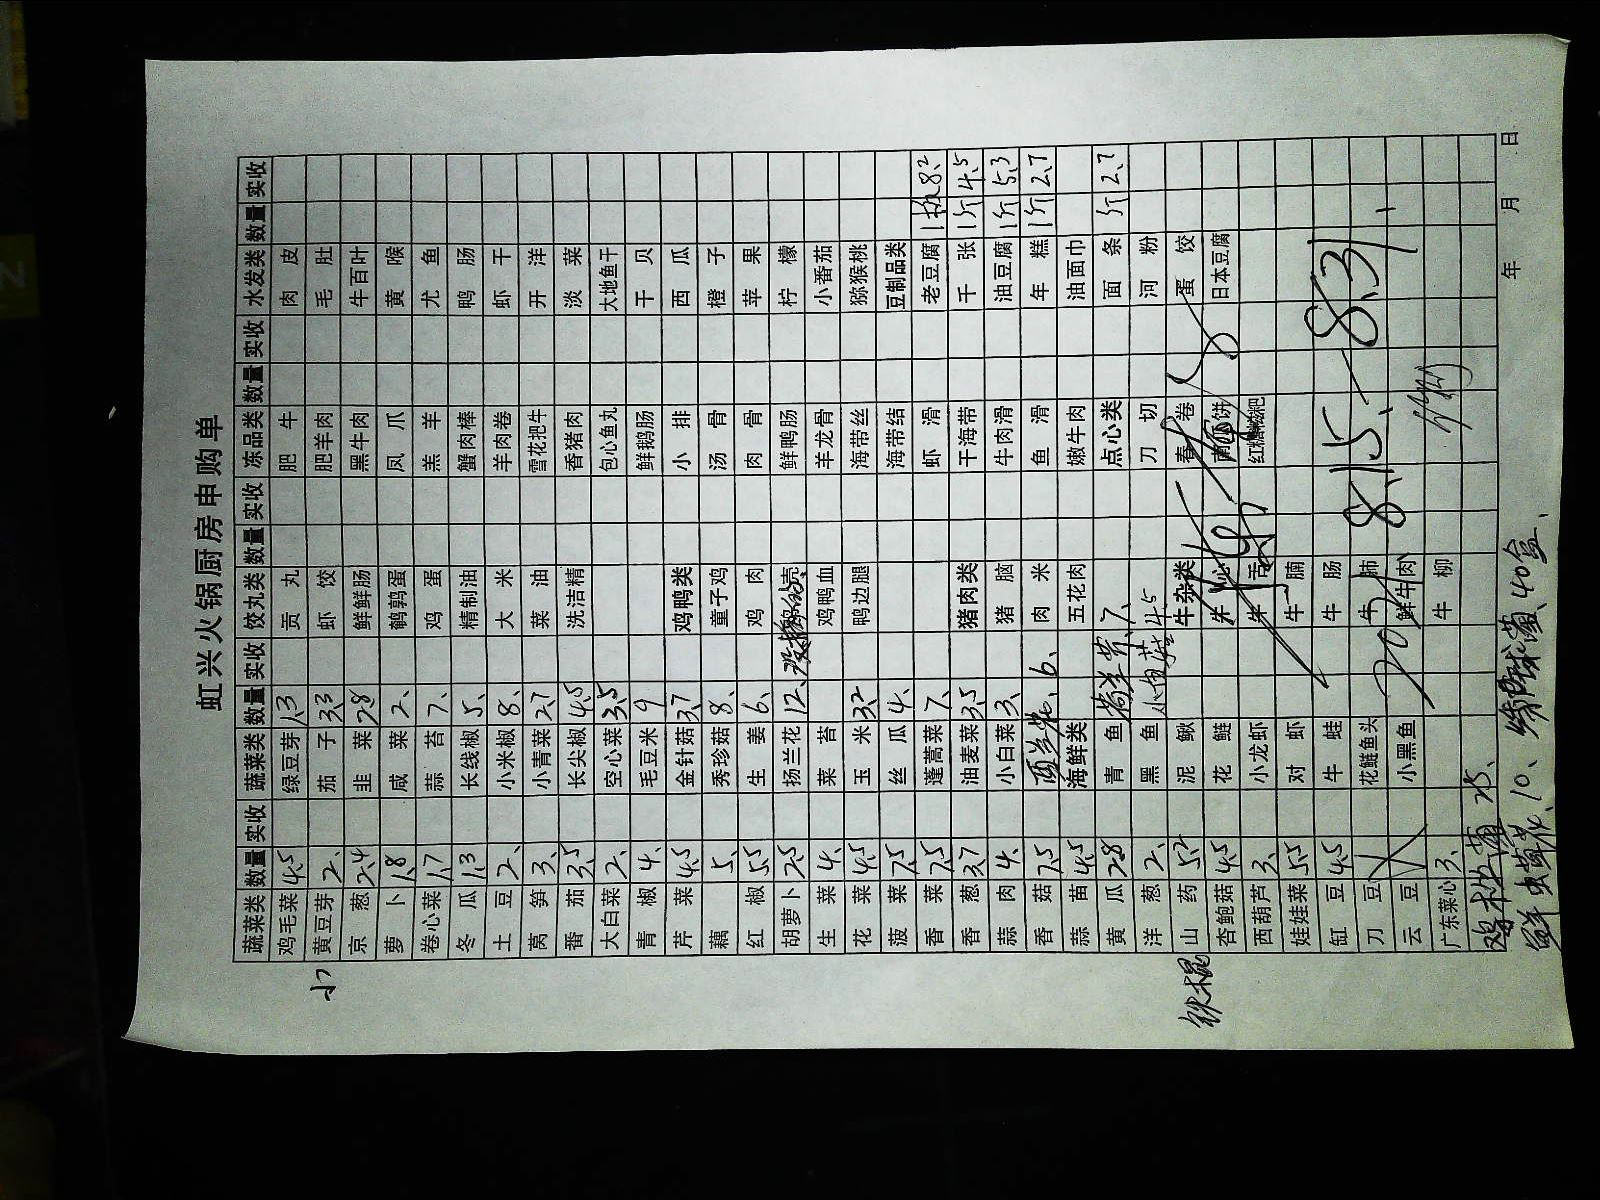 虹兴火锅厨房申购单
蔬菜类 数量 实收 蔬菜类 数量 实收 饺丸类 数量 实收 冻品类 数量 实收 水发类 数量 实收
鸡毛菜 4.5 绿豆芽 1.3 贡丸 肥牛 肉皮
黄豆芽 2、 茄子 3.3 虾饺 肥羊肉 毛肚
京葱 2.4 韭菜 2.8 鲜鲜肠 黑牛肉 牛百叶
萝卜 1.8 咸菜 2、 鹌鹑蛋 凤爪 黄喉
卷心菜 1.7 蒜苔 7、 鸡蛋 羔羊 尤鱼
冬瓜 1.3 长线椒 5、 精制油 蟹肉棒 鸭肠
土豆 2、 小米椒 8、 大米 羊肉卷 虾干
莴笋 3、 小青菜 2.7 菜油 雪花把牛 开洋
番茄 3.5 长尖椒 4.5 洗洁精 香猪肉 淡菜
大白菜 2、 空心菜 3.5 包心鱼丸 大地鱼干
青椒 4、 毛豆米 9 鲜鹅肠 干贝
芹菜 4.5 金针菇 3.7 鸡鸭类 小排 西瓜
藕 5、 秀珍菇 8、 童子鸡 汤骨 橙子
红椒 5.5 生姜 6、 鸡肉 肉骨 苹果
胡萝卜 2.5 扬兰花 12、 鲜鸭肠 柠檬
生菜 4、 莱苔 鸡鸭血 羊龙骨 小番茄
花菜 4.5 玉米 3.2 鸭边腿 海带丝 猕猴桃
菠菜 7.5 丝瓜 4、 海带结 豆制品类
香菜 7.5 蓬蒿菜 7、 猪肉类 虾滑 老豆腐 1板 8.2
香葱 3.7 油麦菜 3.5 猪脑 干海带 千张 1斤 4.5
蒜肉 4、 小白菜 3、 肉米 牛肉滑 油豆腐 1斤 5.3
香菇 7.5 西兰花 6、 五花肉 鱼滑 年糕 1斤 2.7
蒜苗 4.5 海鲜类 嫩牛肉 油面巾
黄瓜 2.8 青鱼 7、 点心类 面条 斤 2.7
洋葱 2、 黑鱼 4.5 刀切 河粉
铁棍 山药 5.2 泥鳅 牛杂类 春卷 蛋饺
杏鲍菇 4.5 花鲢 日本豆腐
西葫芦 3、 小龙虾 红糖糍粑
娃娃菜 5.5 对虾 牛腩
缸豆 4.5 牛蛙 牛肠
刀豆 花鲢鱼头 牛肺
云豆 小黑鱼 鲜牛肉
广东菜心 3、 牛柳
8.15、—8.31、
鲜虫草花、10、
40盒、
年 月 日